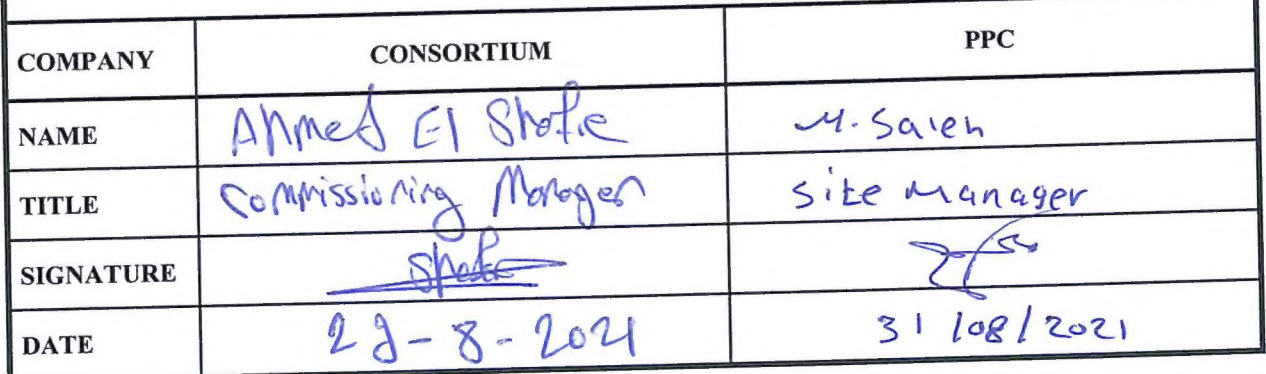 COMPANY CONSORTIUM PPC
NAME Ahmed El Shafie M. Saleh
TITLE Commissioning Manager Site Manager
SIGNATURE
DATE 29-8-2021 31/08/2021